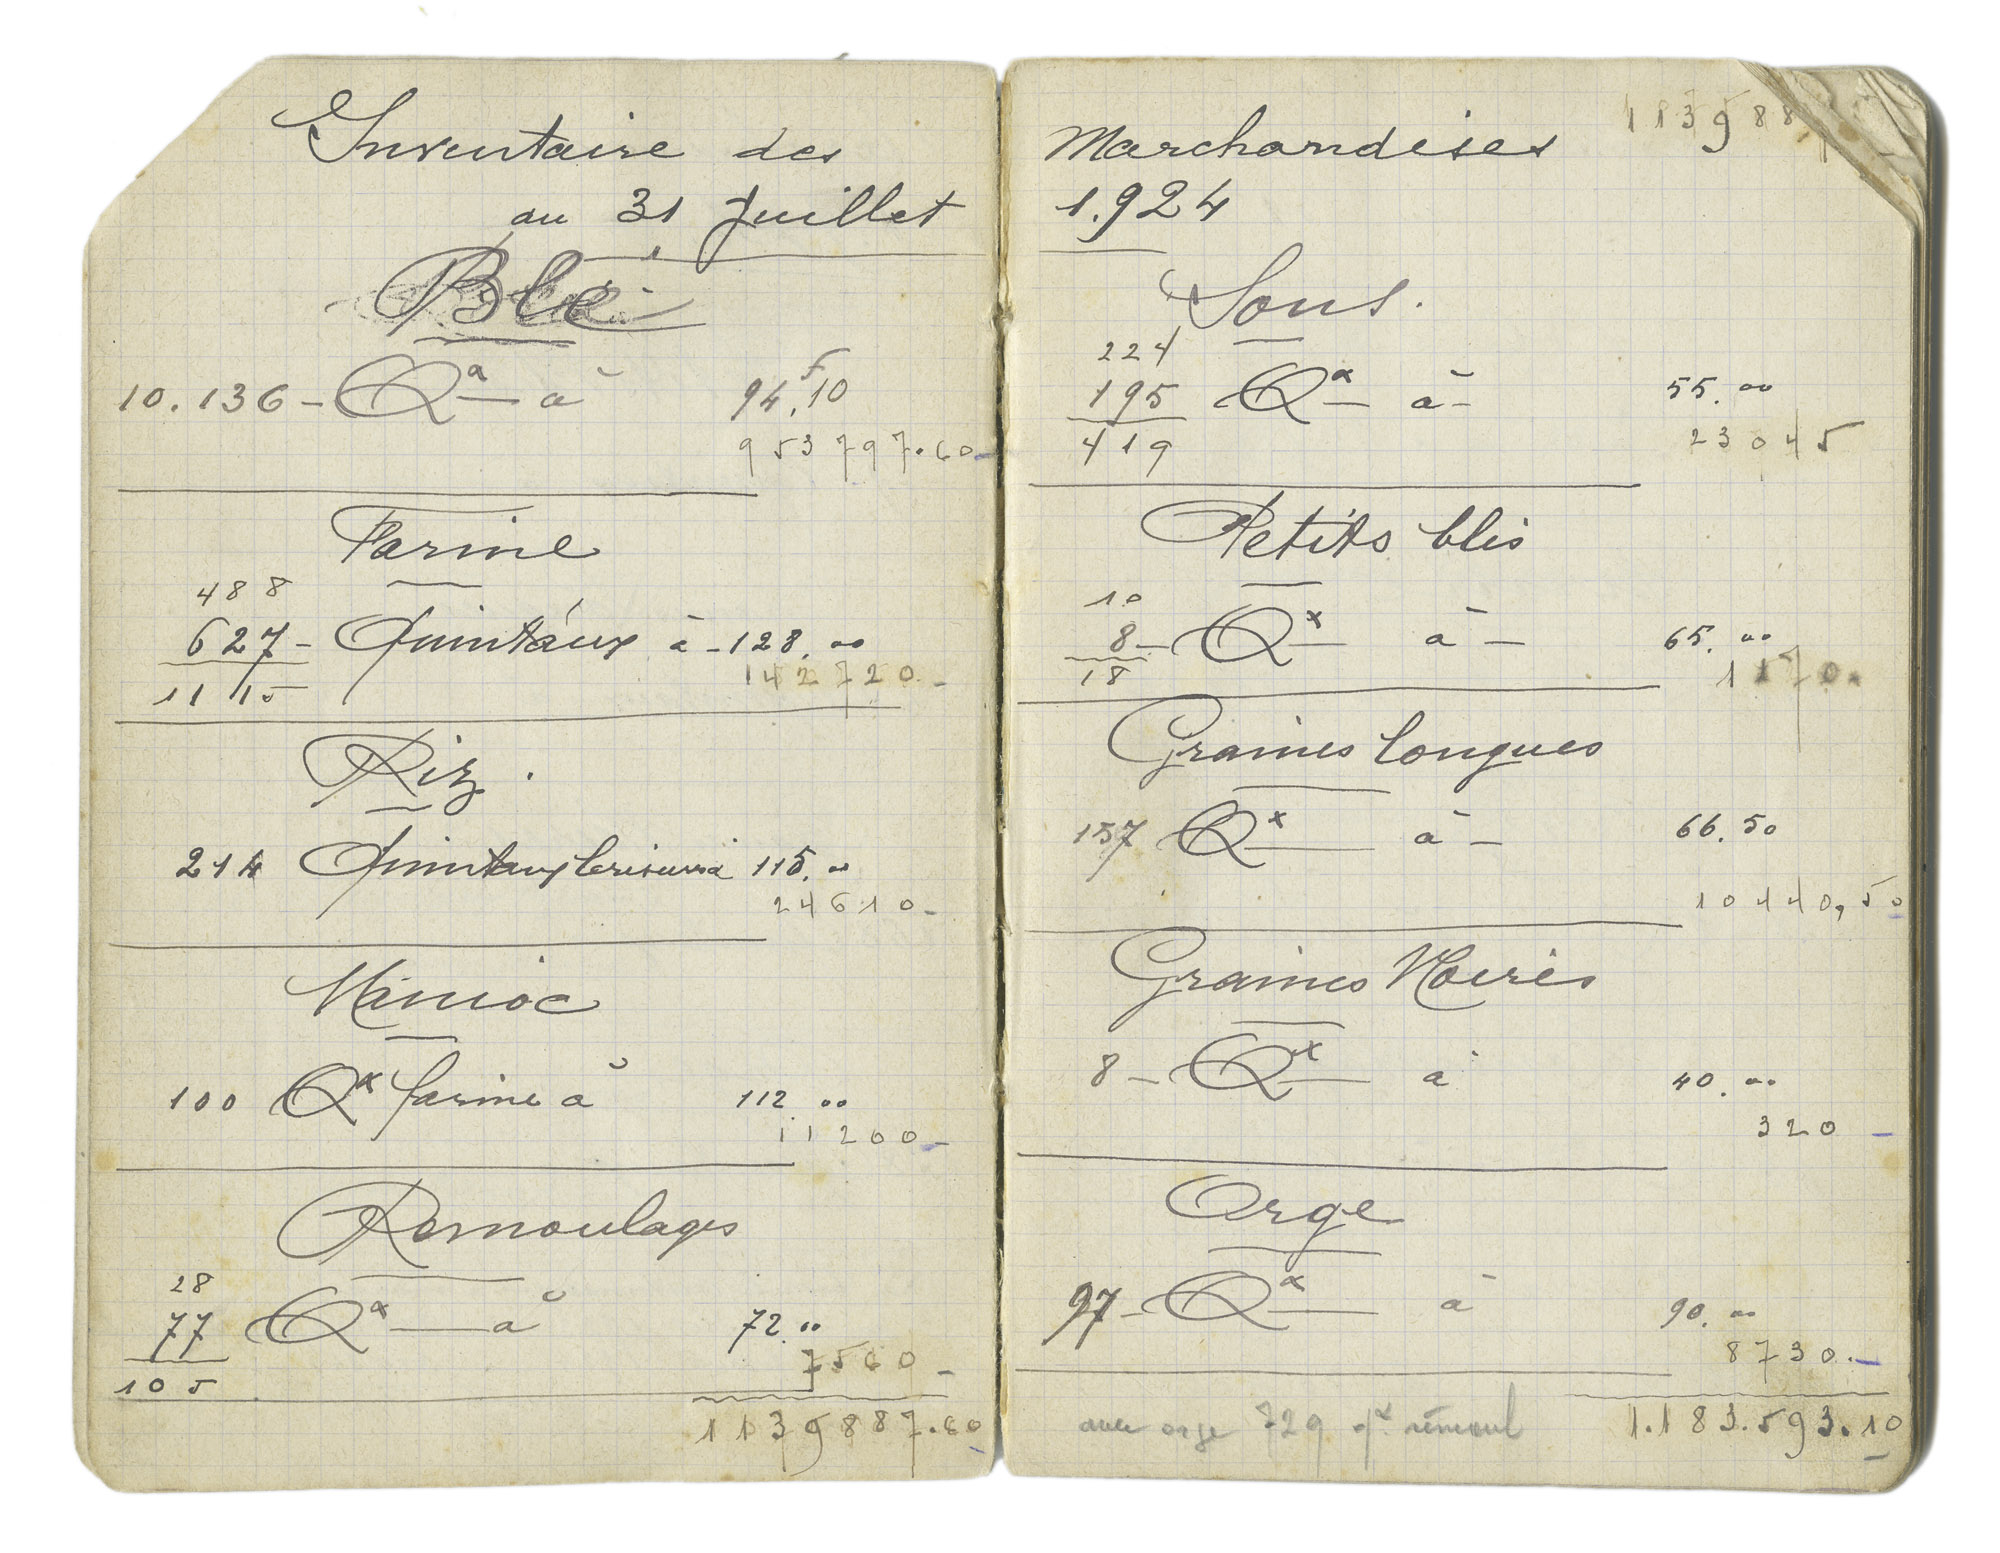 Inventaire des
au 31 Juillet
Blé
10.136 - Qx à 94f,10
953797.60
Farine
488
627 - Quintaux à - 128.00
1115
142720.-
Riz.
214 Quintaux brisures à 115.00
24610-
Manioc
100 Qx farine à 112.00
11200-
Remoulages
28
77 Qx à 72.00
105
7560-
1139887.60
Marchandises
1.924
113988
Sons.
224
195 Qx à - 55.00
419
23045
Petits blés
10
8 - Qx à - 65.00
18
1170.
Graines longues
157 Qx à - 66.50
10440,50
Graines Noires
8 - Qx à 40.00
320 -
Orge
97 - Qx à 90.00
8730.-
avec orge 729 qx rémoul
1.183.593.10